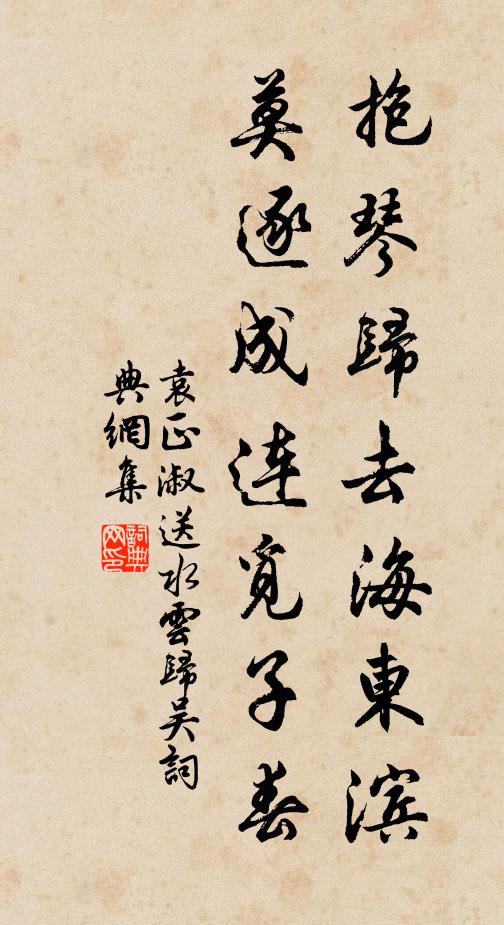 抱琴歸去海東濱
莫逐成連覓子春
袁正淑送水雲歸吳詞
典網集
詞典
网印